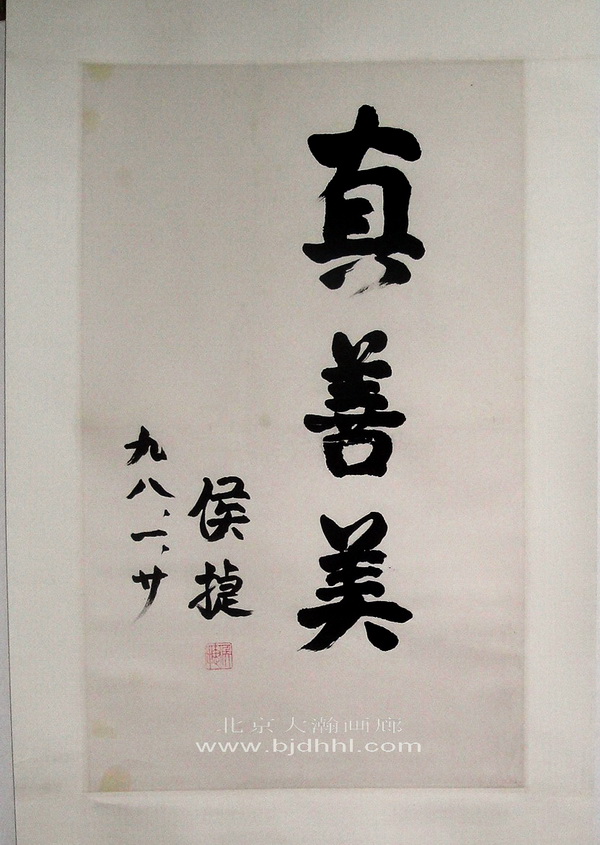 真善美
侯捷
九八、一、廿
北京大瀚画廊
www.bjdhhl.com